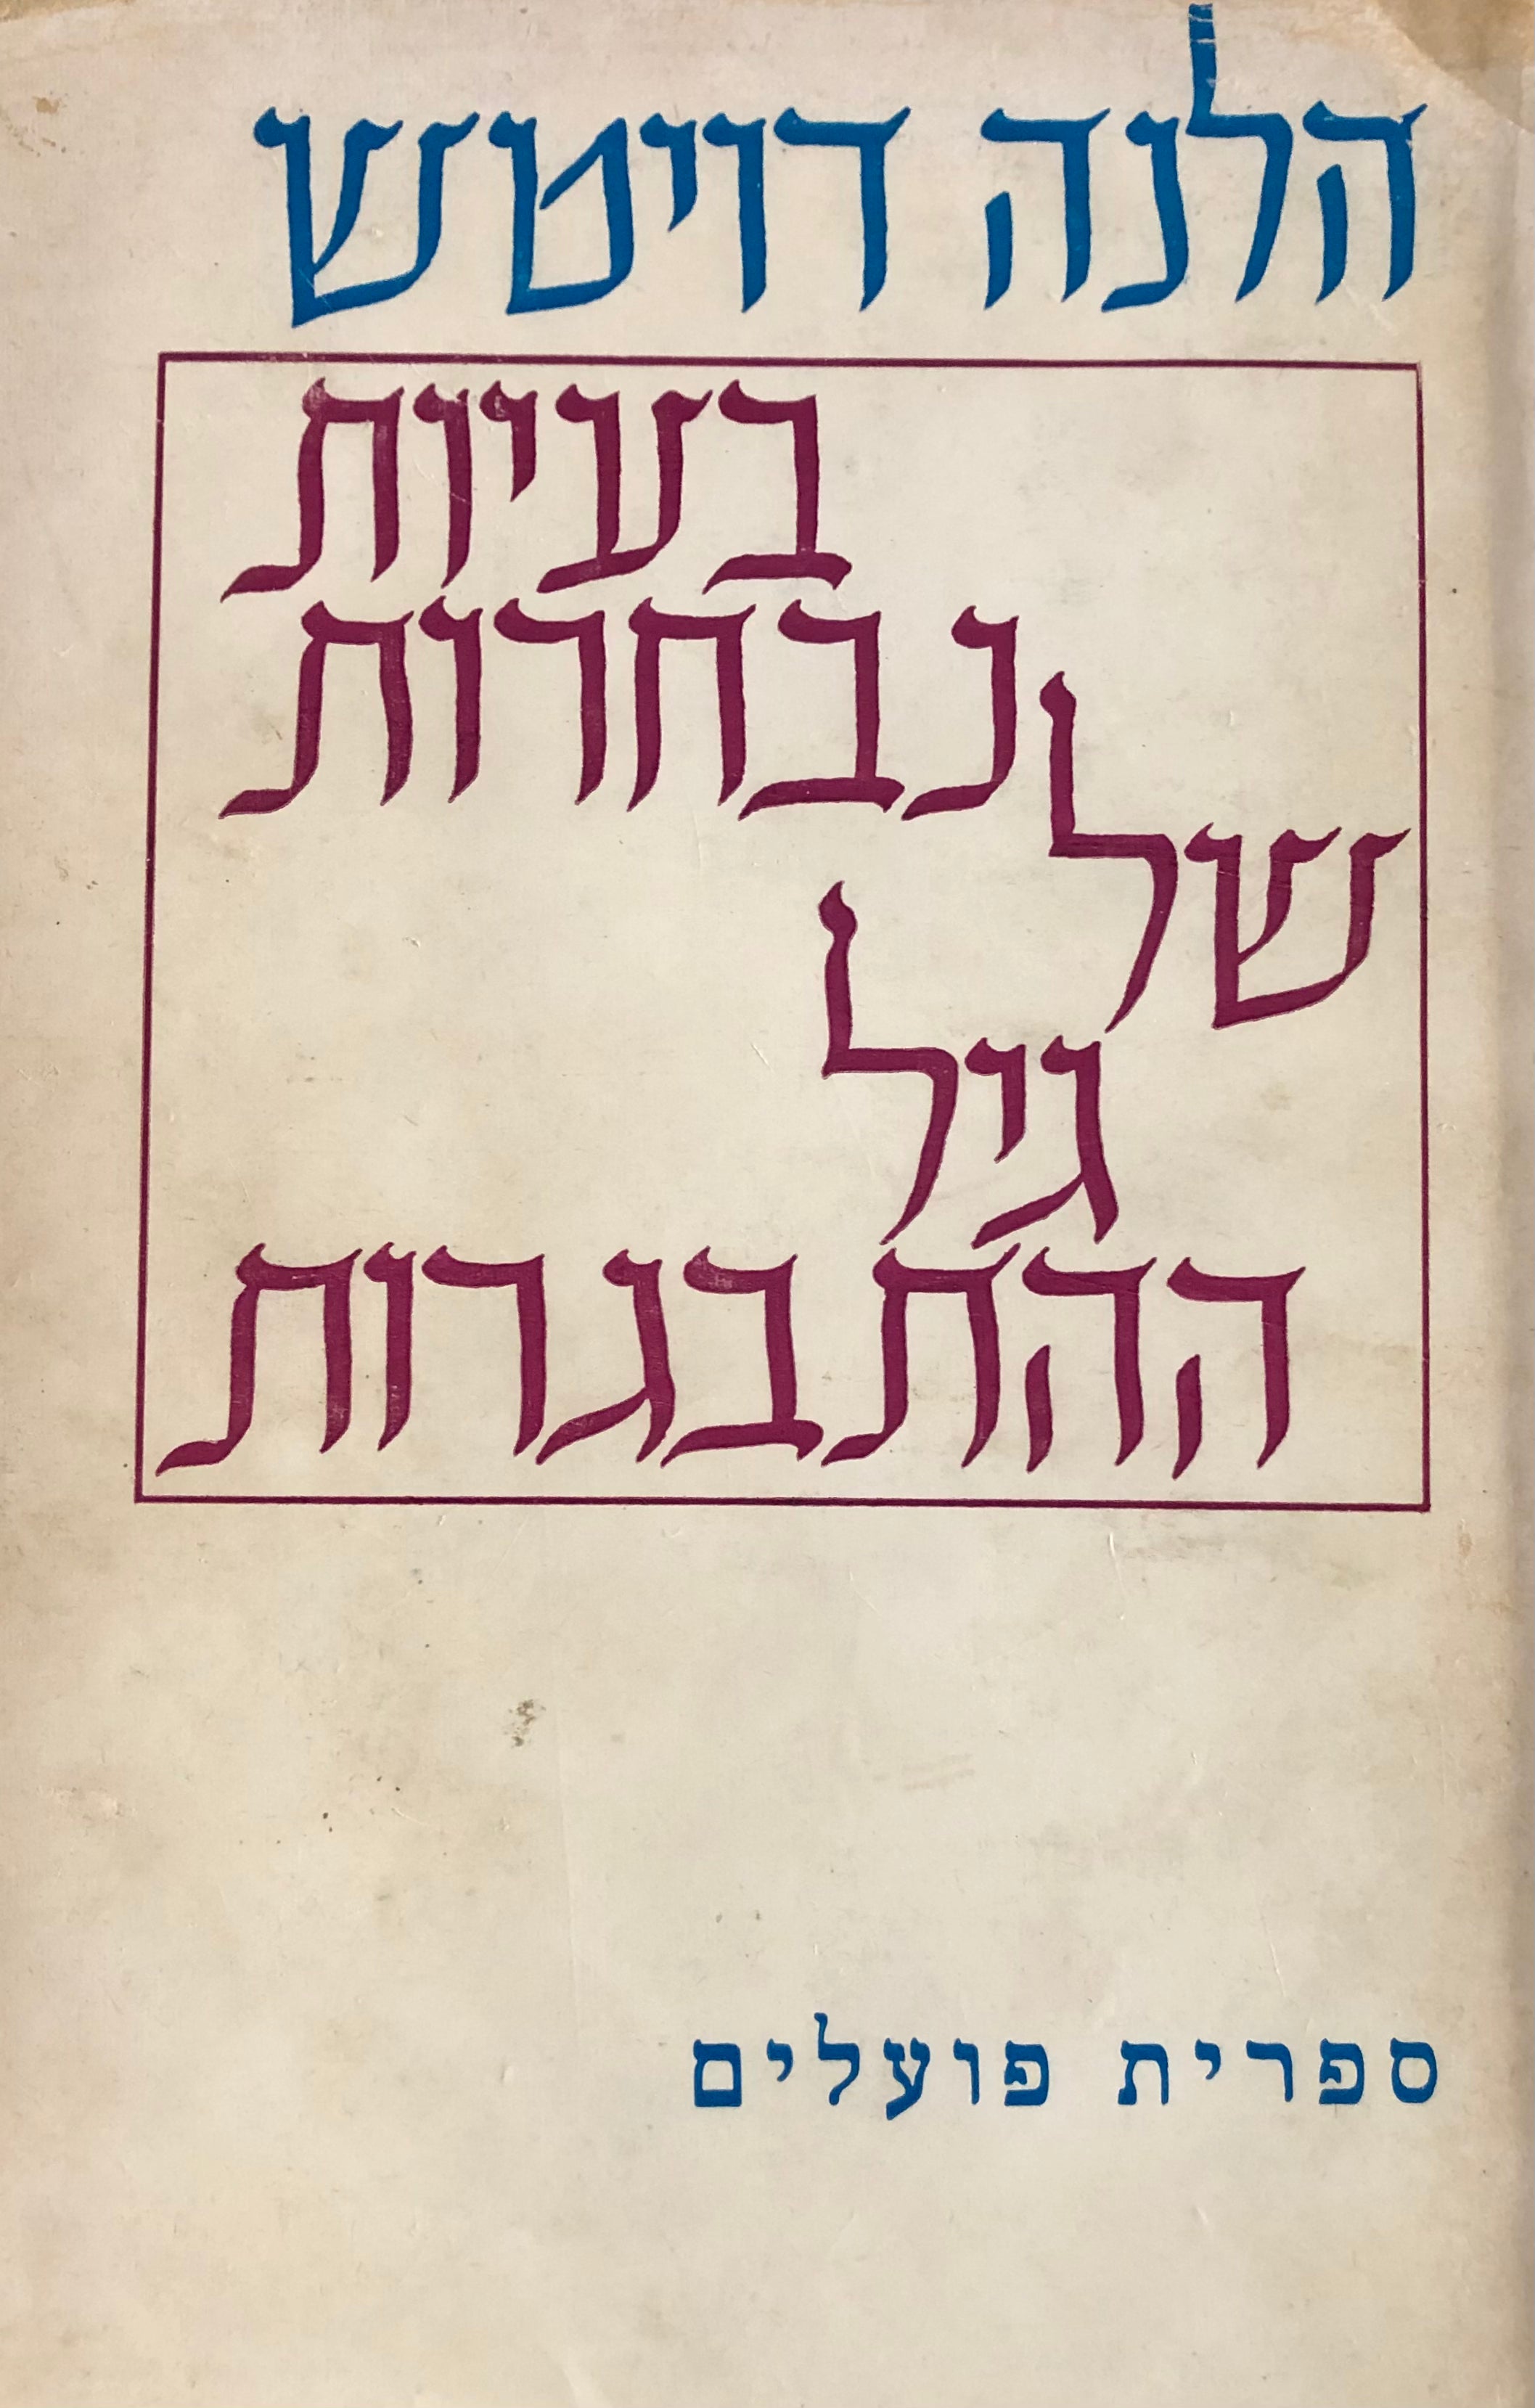 הלנה דויטש
בעיות
נבחרות
של
גיל
ההתבגרות
ספרית פועלים